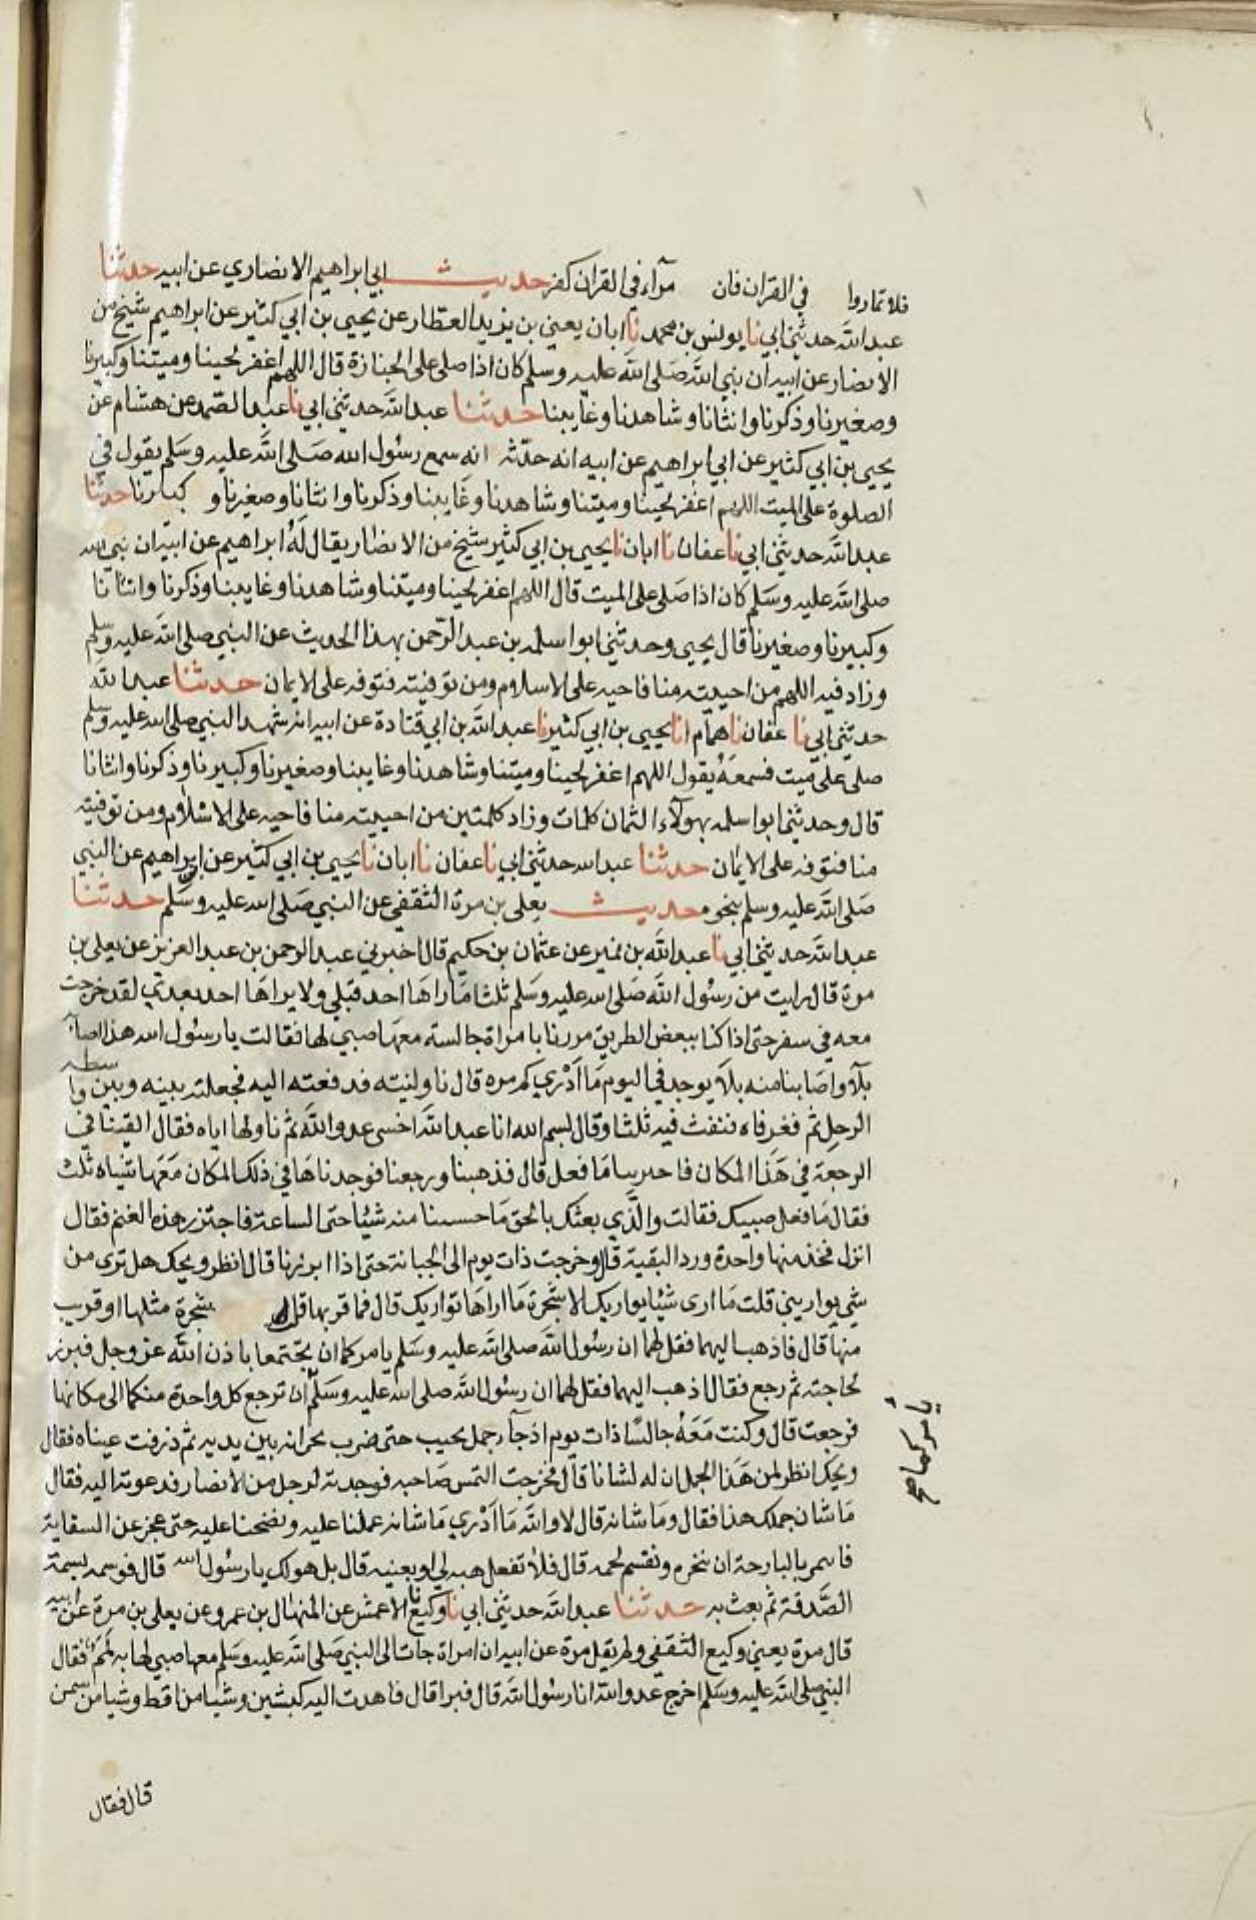 فلا تماروا في القران فان مرآء في القران كفر حديث ابي ابراهيم الانصاري عن ابيه حدثنا
عبد الله حدثني ابي نا يونس بن محمد نا ابان يعني بن يزيد العطار عن يحيى بن ابي كثير عن ابراهيم شيخ من
الانصار عن ابيه ان نبي الله صلى الله عليه وسلم كان اذا صلى على الجنازة قال اللهم اغفر لحينا وميتنا وكبيرنا
وصغيرنا وذكرنا وانثانا وشاهدنا وغايبنا حدثنا عبد الله حدثني ابي نا عبد الصمد عن هشام عن
يحيى بن ابي كثير عن ابي ابراهيم عن ابيه انه حدثه انه سمع رسول الله صلى الله عليه وسلم يقول في
الصلوة على الميت اللهم اغفر لحينا وميتنا وشاهدنا وغايبنا وذكرنا وانثانا وصغيرنا و كبارنا حدثنا
عبد الله حدثني ابي نا عفان نا ابان نا يحيى بن ابي كثير شيخ من الانصار يقال له ابراهيم عن ابيه ان نبي الله
صلى الله عليه وسلم كان اذا صلى على الميت قال اللهم اغفر لحينا وميتنا وشاهدنا وغايبنا وذكرنا وانثانا
وكبيرنا وصغيرنا قال يحيى وحدثني ابوا سلمه بن عبد الرحمن بهذا الحديث عن النبي صلى الله عليه وسلم
وزاد فيه اللهم من احييته منا فاحيه على الاسلام ومن توفيته فتوفه على الايمان حدثنا عبد الله
حدثني ابي نا عفان نا همام انا يحيى بن ابي كثير نا عبد الله بن ابي قتادة عن ابيه انه شهد النبي صلى الله عليه وسلم
صلى على ميت فسمعه يقول اللهم اغفر لحينا وميتنا وشاهدنا وغايبنا وصغيرنا وكبيرنا وذكرنا وانثانا
قال وحدثني ابوا سلمه بهولآء الثمان كلمات وزاد كلمتين من احييته منا فاحيه على الاسلام ومن توفيته
منا فتوفه على الايمان حدثنا عبد الله حدثني ابي نا عفان نا ابان نا يحيى بن ابي كثير عن ابراهيم عن النبي
صلى الله عليه وسلم بنحوه حديث يعلى بن مرة الثقفي عن النبي صلى الله عليه وسلم حدثنا
عبد الله حدثني ابي نا عبد الله بن نمير عن عثمان بن حكيم قال اخبرني عبد الرحمن بن عبد العزيز عن يعلى بن
مرة قال رايت من رسول الله صلى الله عليه وسلم ثلثا ما راها احد قبلي ولا يراها احد بعدي لقد خرجت
معه في سفر حتى اذا كنا ببعض الطريق مررنا بامراة جالسة معها صبي لها فقالت يا رسول الله هذا اصابه
بلآ واصابنا منه بلآ يوجد في اليوم ما ادري كم مره قال ناولنيه فدفعته اليه فجعلته بينه وبين واسطه
الرحل ثم فغر فاه فنفث فيه ثلثا وقال بسم الله انا عبد الله اخسى عدو الله ثم ناولها اياه فقال القينا في
الرجعة في هذا المكان فاخبرينا ما فعل قال فذهبنا ورجعنا فوجدناها في ذلك المكان معها شياه ثلث
فقال ما فعل صبيك فقالت والذي بعثك بالحق ما حسسنا منه شيئا حتى الساعة فاجتزر هذه الغنم فقال
انزل فخذ منها واحدة ورد البقية قال وخرجت ذات يوم الى الجبانة حتى اذا ابرزنا قال انظر ويحك هل ترى من
شي يواريني قلت ما ارى شيئا يواريك الا شجرة ما اراها تواريك قال فما قربها قلت شجرة مثلها او قريب
منها قال فاذهب اليهما فقل لهما ان رسول الله صلى الله عليه وسلم يامركما ان تجتمعا باذن الله عز وجل فبرز
لحاجته ثم رجع فقال اذهب اليهما فقل لهما ان رسول الله صلى الله عليه وسلم ان ترجع كل واحدة منكما الى مكانها
يامركما صح
فرجعت قال وكنت معه جالسا ذات يوم اذ جآء جمل يخبب حتى ضرب بجرانه بين يديه ثم ذرفت عيناه فقال
ويحك انظر لمن هذا الجمل ان له لشانا قال فخرجت التمس صاحبه فوجدته لرجل من الانصار فدعوته اليه فقال
ما شان جملك هذا فقال وما شانه قال لا والله ما ادري ما شانه عملنا عليه ونضحنا عليه حتى عجز عن السقاية
فاتمرنا البارحة ان ننحره ونقسم لحمه قال فلا تفعل هبه لي او بعنيه قال بل هو لك يا رسول الله قال فوسمه بسمة
الصدقة ثم بعث به حدثنا عبد الله حدثني ابي نا وكيع نا الاعمش عن المنهال بن عمرو عن يعلى بن مرة عن ابيه
قال مرة يعني وكيع الثقفي ولم يقل مرة عن ابيه ان امراة جات الى النبي صلى الله عليه وسلم معها صبي لها به لمم فقال
النبي صلى الله عليه وسلم اخرج عدو الله انا رسول الله قال فبرا قال فاهدت اليه كبشين وشيا من اقط وشيا من سمن
قال فقال